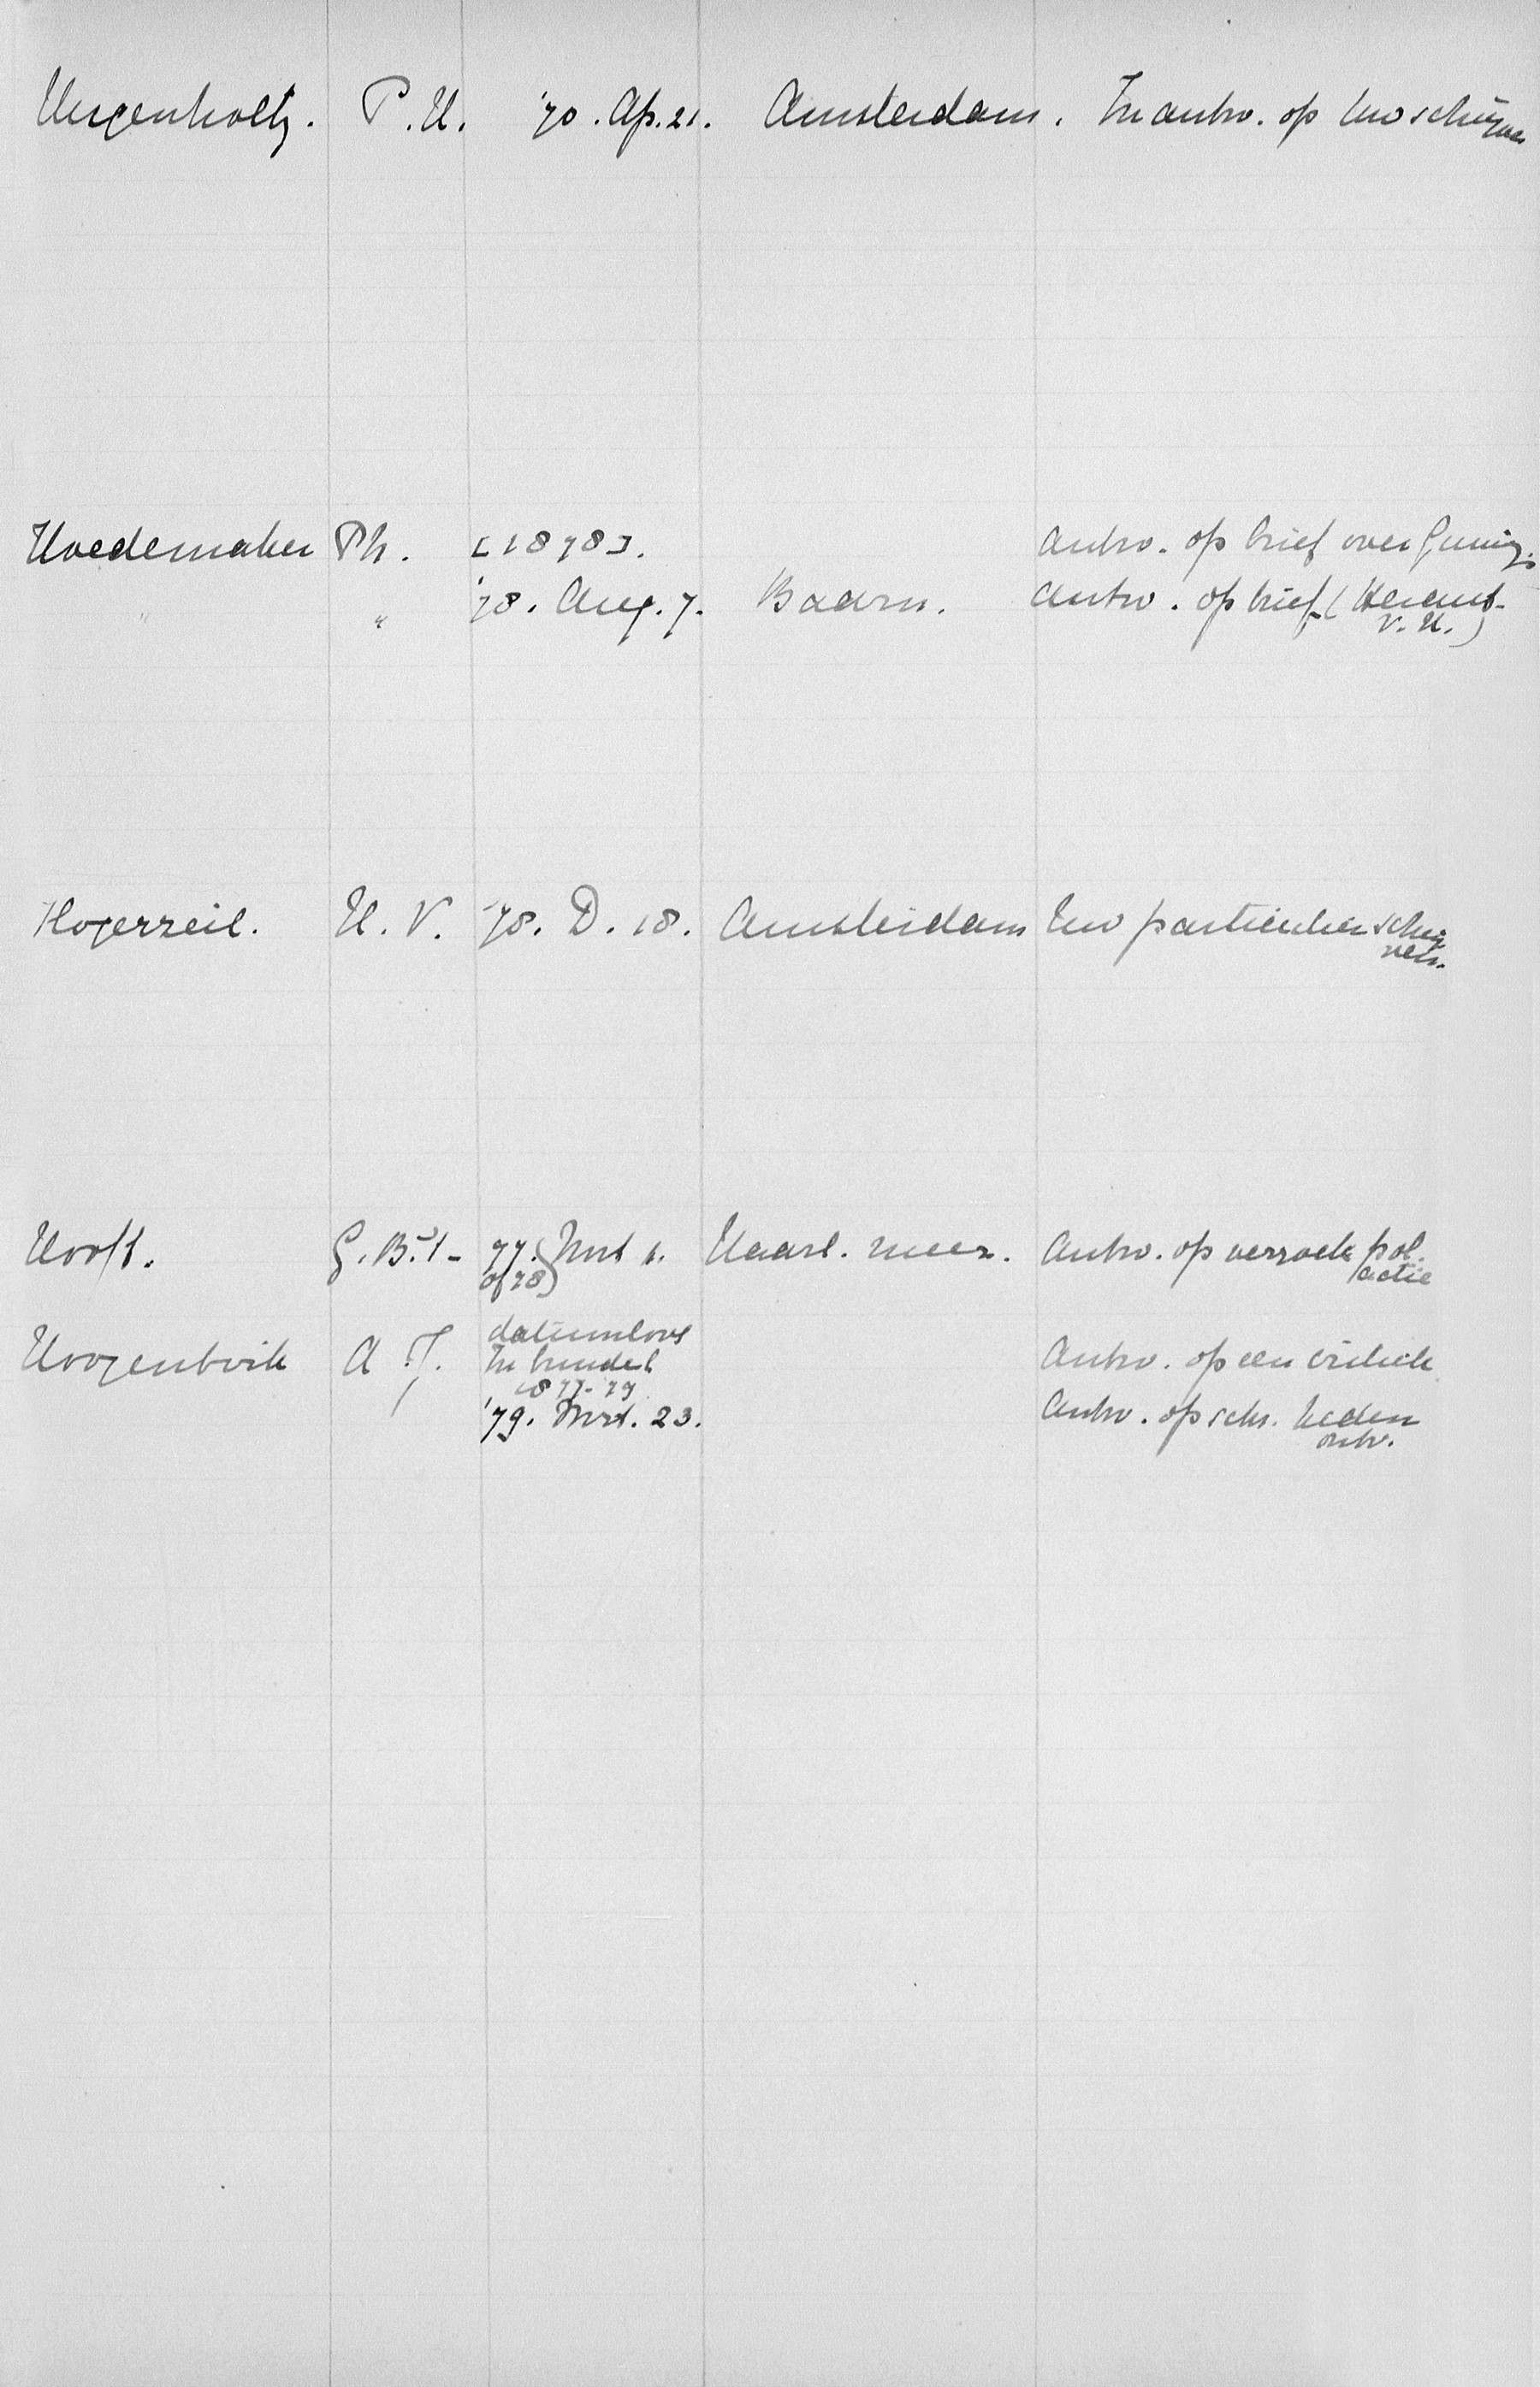 Hugenholtz. P. H. '70. Ap. 21. Amsterdam. In antw. op Uw schrijven
Hoedemaker Ph. [1878]. Antw. op brief over Gunning.
" " '78. Aug. 7. Baarn. Antw. op brief (Heraut-
V. U.)
Hogerzeil. H. V. '78. D. 18. Amsterdam Uw particulier schrij
ven.
Hooft. G. B. 't- 77. Mrt 1. Haarl. meer. Antw. op verzoek pol.
of 78) actie
datumloos
Hoogenbirk A. J. In bundel Antw. op een critiek
1877-79
'79. Mrt. 23. Antw. op schr. heden
ontv.